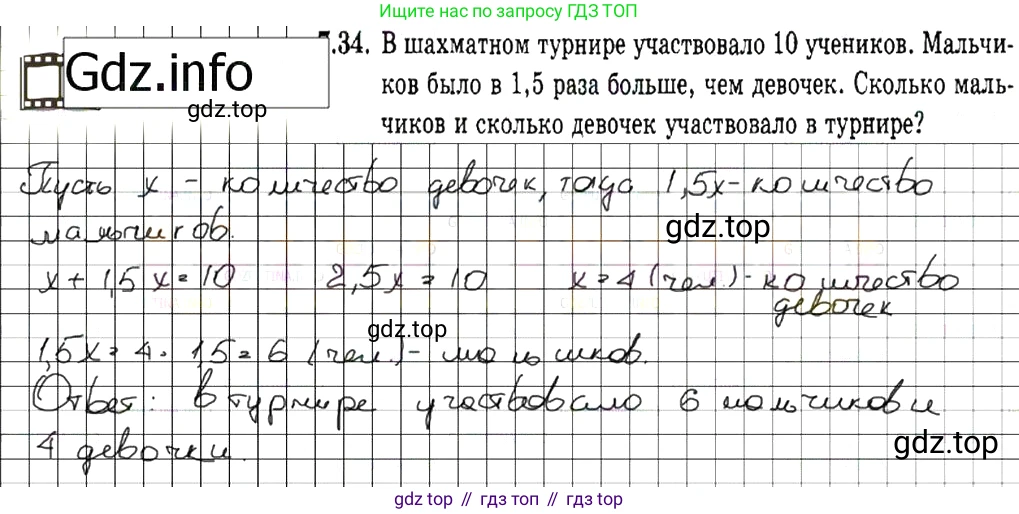 Ищите нас по запросу ГДЗ ТОП
7.34. В шахматном турнире участвовало 10 учеников. Мальчи-
Gdz.info
ков было в 1,5 раза больше, чем девочек. Сколько маль-
gdz.top
чиков и сколько девочек участвовало в турнире?
Пусть x - количество девочек, тогда 1,5x - количество
gdz.top
мальчиков.
x + 1,5x = 10 2,5x = 10 x = 4 (чел.) - количество
девочек
gdz.top
1,5x = 4 · 1,5 = 6 (чел.) - мальчиков.
Ответ: в турнире участвовало 6 мальчиков и
4 девочки.
gdz.top
gdz top // гдз топ // gdz top